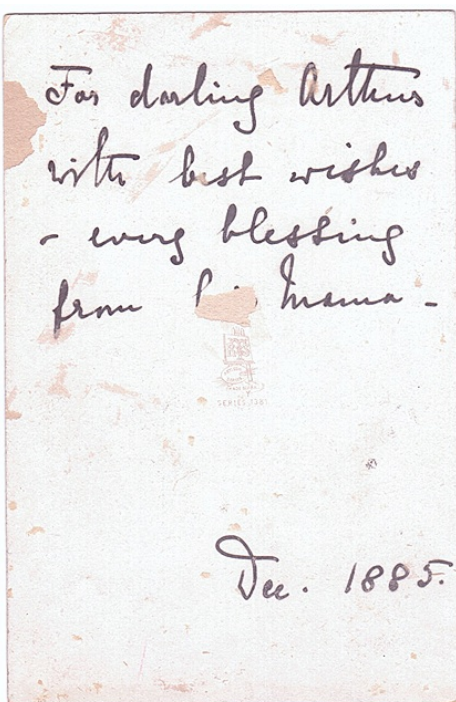 For darling Arthur
with best wishes
- every blessing
from Mama -
SERIES
Dec. 1885.